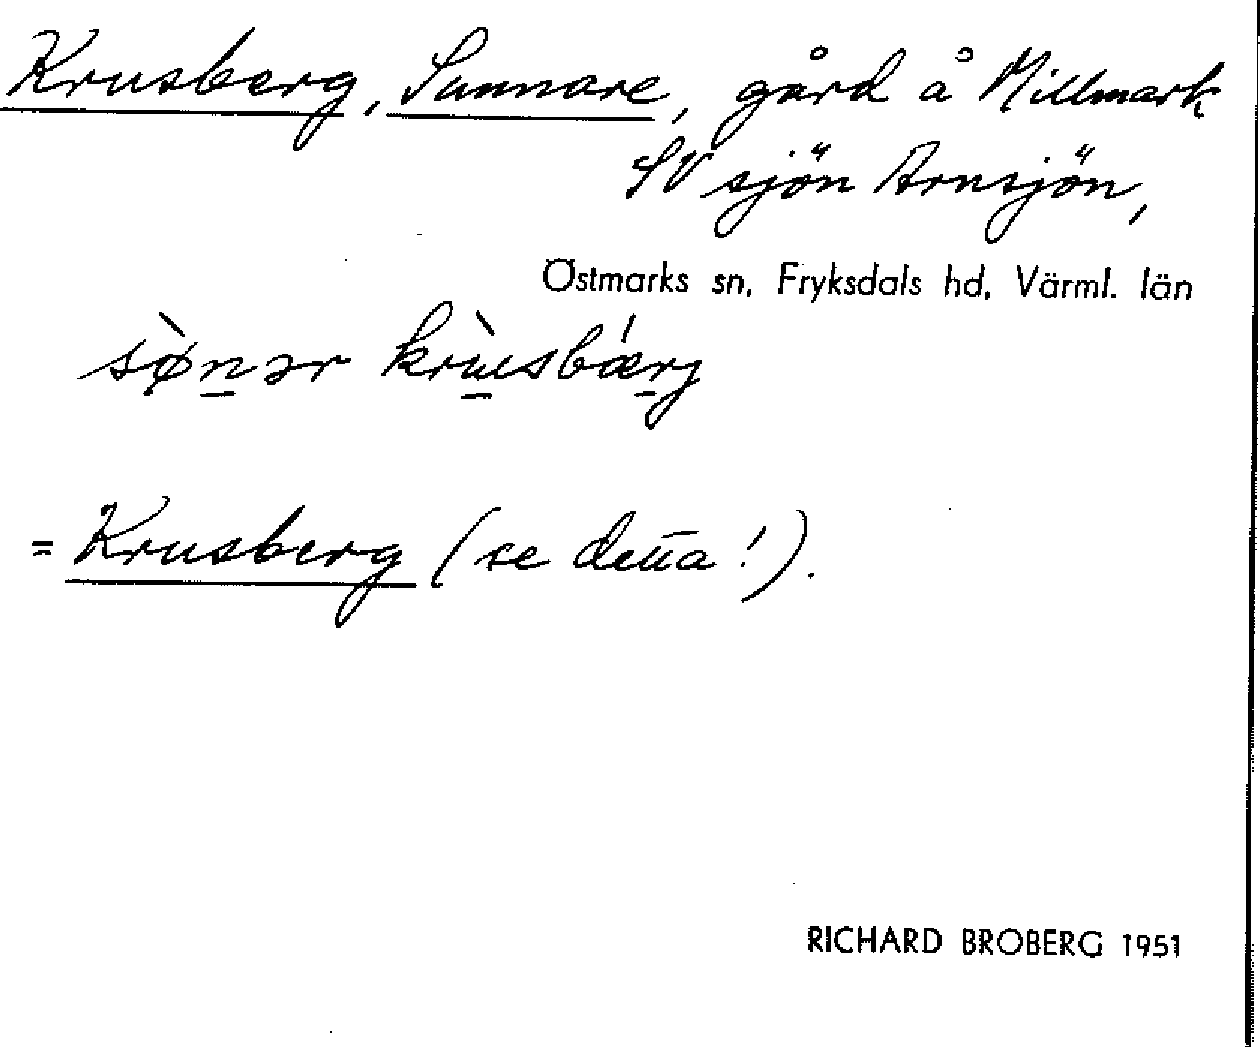 Krusberg, Sunnare, gård å Millmark
SV sjön Arnsjön,
Östmarks sn, Fryksdals hd, Värml. län
sø̀n̲ər krù̲sbǽr̲j
= Krusberg (se detta!).
RICHARD BROBERG 1951